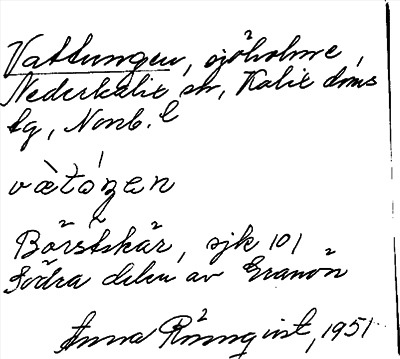 Vattungen, sjöholme,
Nederkalix sn, Kalix doms
lg, Nonb. l
vætoŋen
Börstskär, sjk 101
Södra delen av Granön
Anna Rönnqvist, 1951